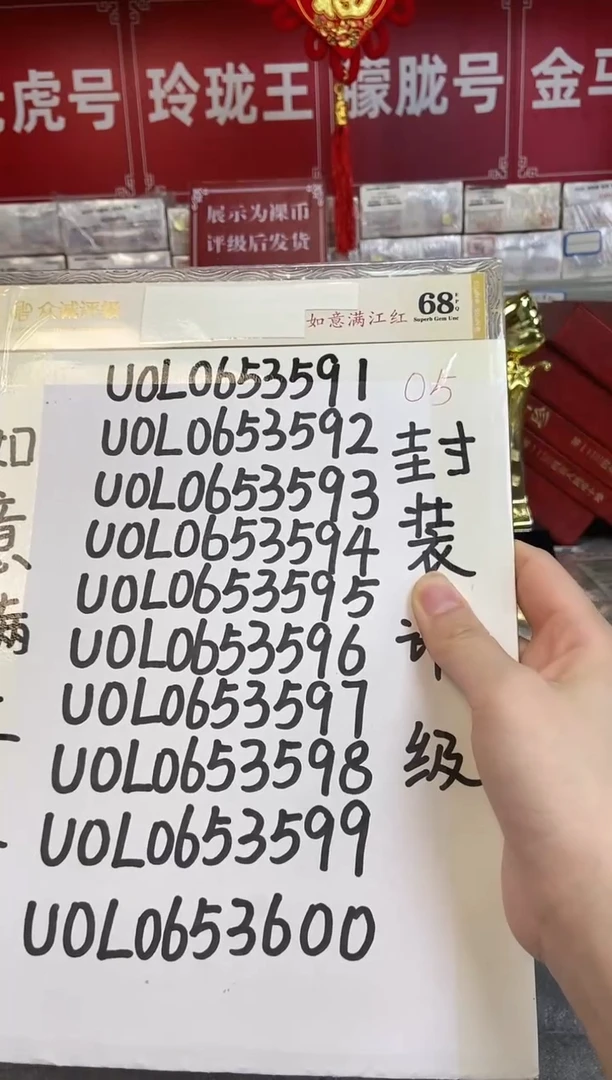 虎号
玲珑王
朦胧号
金马
展示为裸币
评级后发货
众诚评级
如意满江红
68 EPQ
Superb Gem Unc
05
UOL0653591
UOL0653592
UOL0653593
UOL0653594
UOL0653595
UOL0653596
UOL0653597
UOL0653598
UOL0653599
UOL0653600
封装评级
如意满